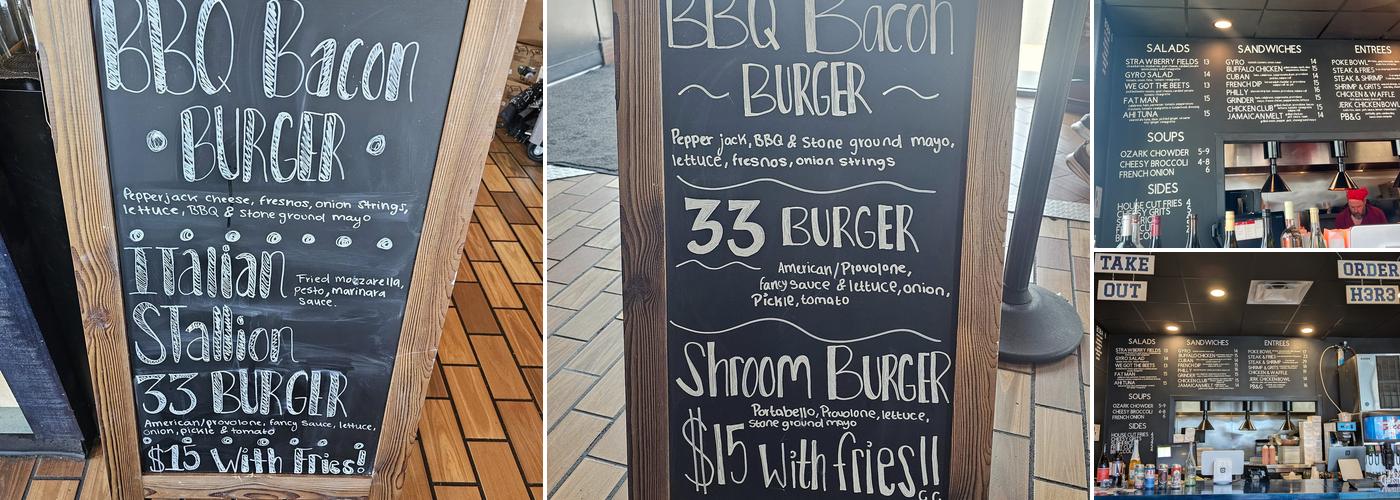 BBQ Bacon
BURGER
Pepperjack cheese, fresnos, onion strings,
lettuce, BBQ & stone ground mayo
Italian
Fried mozzarella,
pesto, marinara
sauce.
Stallion
33 BURGER
American/provolone, fancy sauce, lettuce,
onion, pickle & tomato
$15 With Fries!
BBQ Bacon
BURGER
Pepper jack, BBQ & Stone ground mayo,
lettuce, fresnos, onion strings
33 BURGER
American/Provolone,
fancy sauce & lettuce, onion,
Pickle, tomato
Shroom BURGER
Portabello, Provolone, lettuce,
Stone ground mayo
$15 with fries!!
SALADS
STRAWBERRY FIELDS 13
GYRO SALAD 14
WE GOT THE BEETS 13
FAT MAN 15
AHI TUNA 15
SOUPS
OZARK CHOWDER 5-9
CHEESY BROCCOLI 4-8
FRENCH ONION 6
SIDES
HOUSE CUT FRIES 4
CHEESY GRITS
SANDWICHES
GYRO 14
BUFFALO CHICKEN 14
CUBAN
FRENCH DIP
PHILLY
GRINDER
CHICKEN CLUB
JAMAICAN MELT
ENTREES
POKE BOWL
STEAK & FRIES
STEAK & SHRIMP
SHRIMP & GRITS
CHICKEN & WAFFLE
JERK CHICKEN BOWL
PB&G
TAKE
OUT
ORDER
H3R3
SALADS
STRAWBERRY FIELDS
GYRO SALAD
WE GOT THE BEETS
FAT MAN
AHI TUNA
SOUPS
OZARK CHOWDER 5-9
CHEESY BROCCOLI 4-8
FRENCH ONION 6
SIDES
HOUSE CUT FRIES
CHEESY GRITS
SANDWICHES
GYRO
BUFFALO CHICKEN
CUBAN
FRENCH DIP
PHILLY
GRINDER
CHICKEN CLUB
JAMAICAN MELT
ENTREES
POKE BOWL
STEAK & FRIES
STEAK & SHRIMP
SHRIMP & GRITS
CHICKEN & WAFFLE
JERK CHICKEN BOWL
PB&G